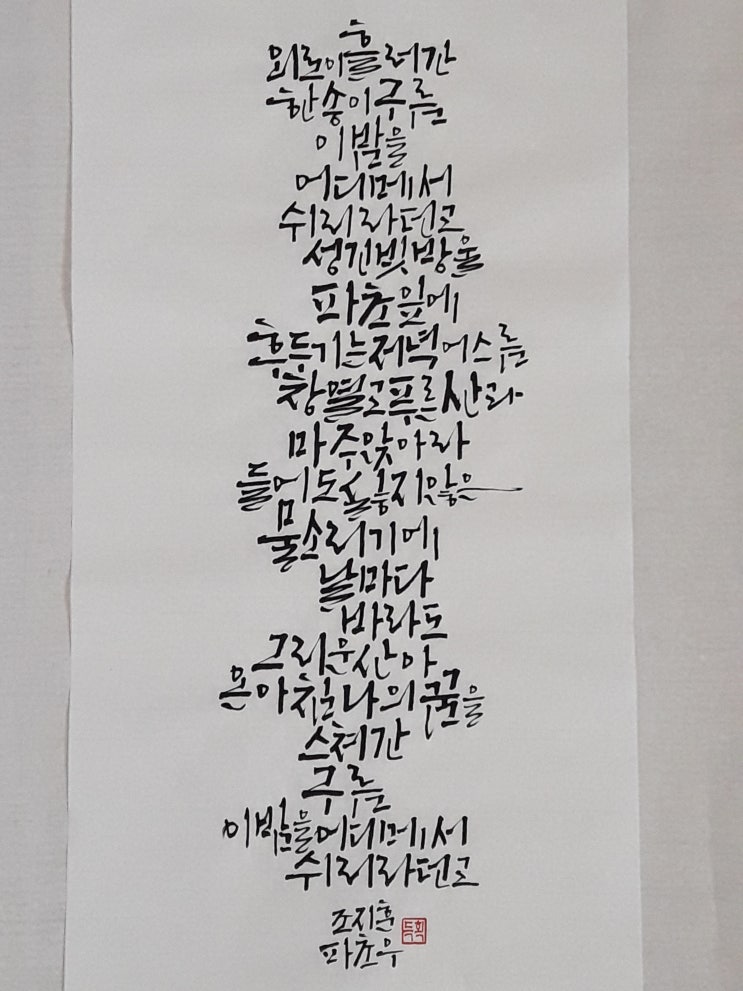 외로이흘러간
한송이구름
이밤을
어디메서
쉬리라던고
성긴빗방울
파초잎에
후두기는저녁어스름
창열고푸른산과
마주앉아라
들어도싫증지않은
물소리기에
날마다
바라도
그리운산아
온아침나의꿈을
스쳐간
구름
이밤을어디메서
쉬리라던고
조지훈
파초우